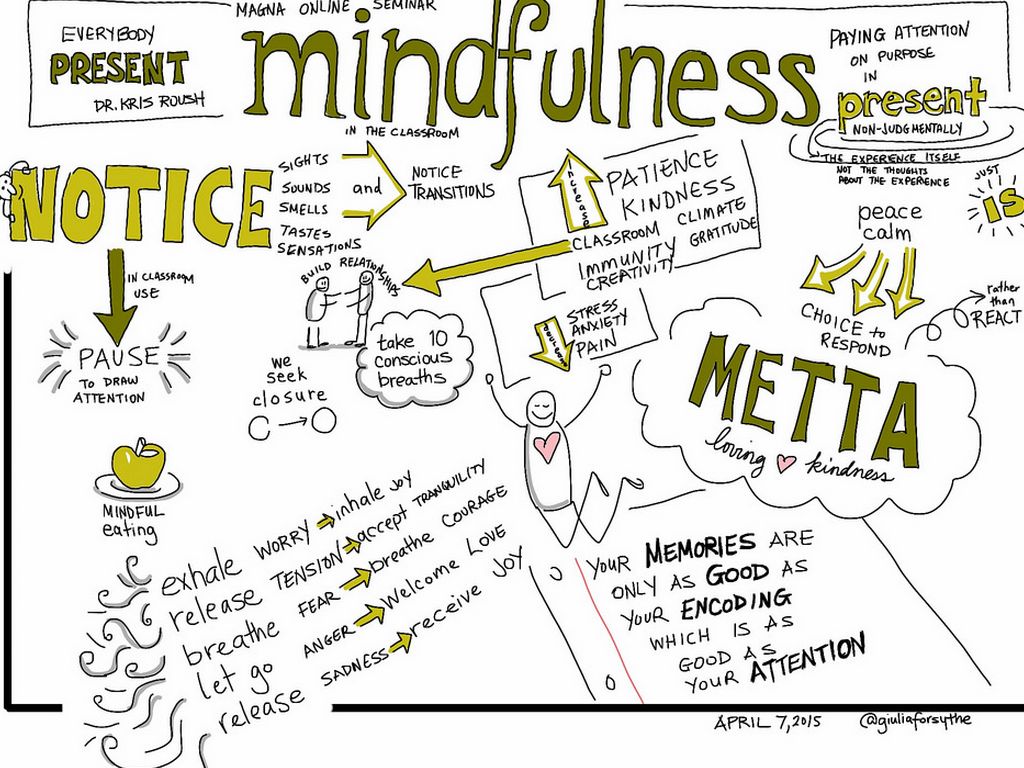 MAGNA ONLINE SEMINAR
mindfulness
IN THE CLASSROOM
EVERYBODY
PRESENT
DR. KRIS ROUSH
PAYING ATTENTION
ON PURPOSE
IN
present
NON-JUDGMENTALLY
THE EXPERIENCE ITSELF
NOT THE THOUGHTS
ABOUT THE EXPERIENCE
JUST
IS
NOTICE
SIGHTS
SOUNDS
SMELLS
TASTES
SENSATIONS
and
NOTICE
TRANSITIONS
increase
PATIENCE
KINDNESS
CLASSROOM CLIMATE
IMMUNITY GRATITUDE
CREATIVITY
BUILD RELATIONSHIPS
STRESS
ANXIETY
PAIN
peace
calm
CHOICE to
RESPOND
rather
than
REACT
IN CLASSROOM
USE
PAUSE
TO DRAW
ATTENTION
we
seek
closure
take 10
conscious
breaths
METTA
loving kindness
MINDFUL
eating
exhale WORRY inhale JOY
release TENSION accept TRANQUILITY
breathe FEAR breathe COURAGE
let go ANGER Welcome LOVE
release SADNESS receive JOY
YOUR MEMORIES ARE
ONLY AS GOOD AS
YOUR ENCODING
WHICH IS AS
GOOD AS
YOUR ATTENTION
APRIL 7, 2015 @giuliaforsythe